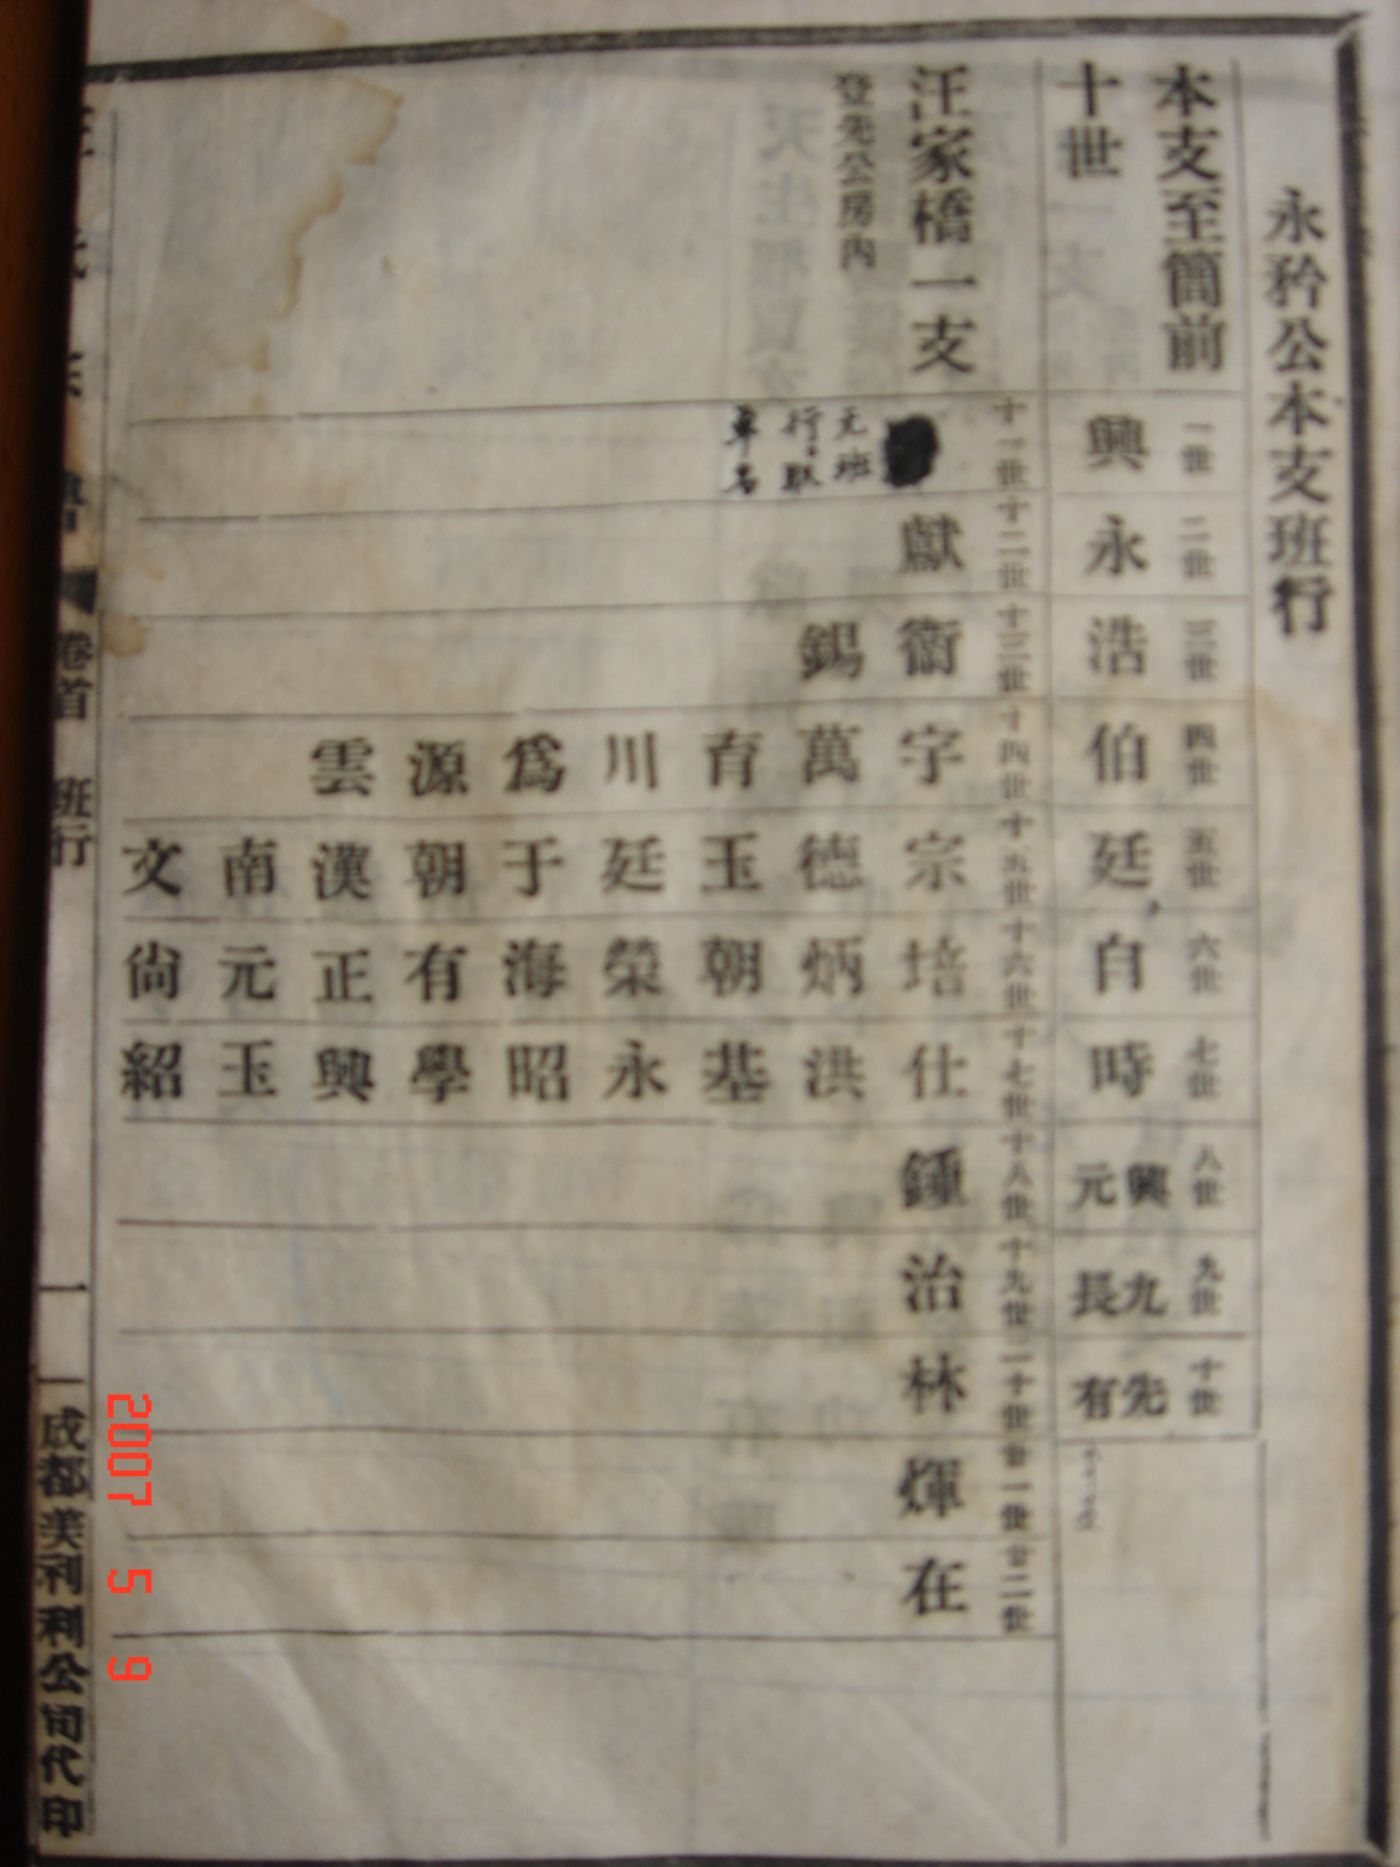 永矜公本支班行
本支至簡前
十世
一世 二世 三世 四世 五世 六世 七世 八世 九世 十世
興 永 浩 伯 廷 自 時 興元 九長 先有
汪家橋一支
登先公房內
十一世 十二世 十三世 十四世 十五世 十六世 十七世 十八世 十九世 二十世 廿一世 廿二世
獻 衛 字 宗 培 仕 鍾 治 林 煇 在
錫 萬 德 炳 洪
元班
行取
单名
育 玉 朝 基
川 廷 榮 永
爲 于 海 昭
源 朝 有 學
雲 漢 正 興
南 元 玉
文 尙 紹
卷首 班行
一
成都美利利公司代印
2007 5 9